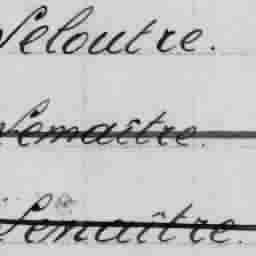 Leloutre.
Lemaître.
Lenaître.